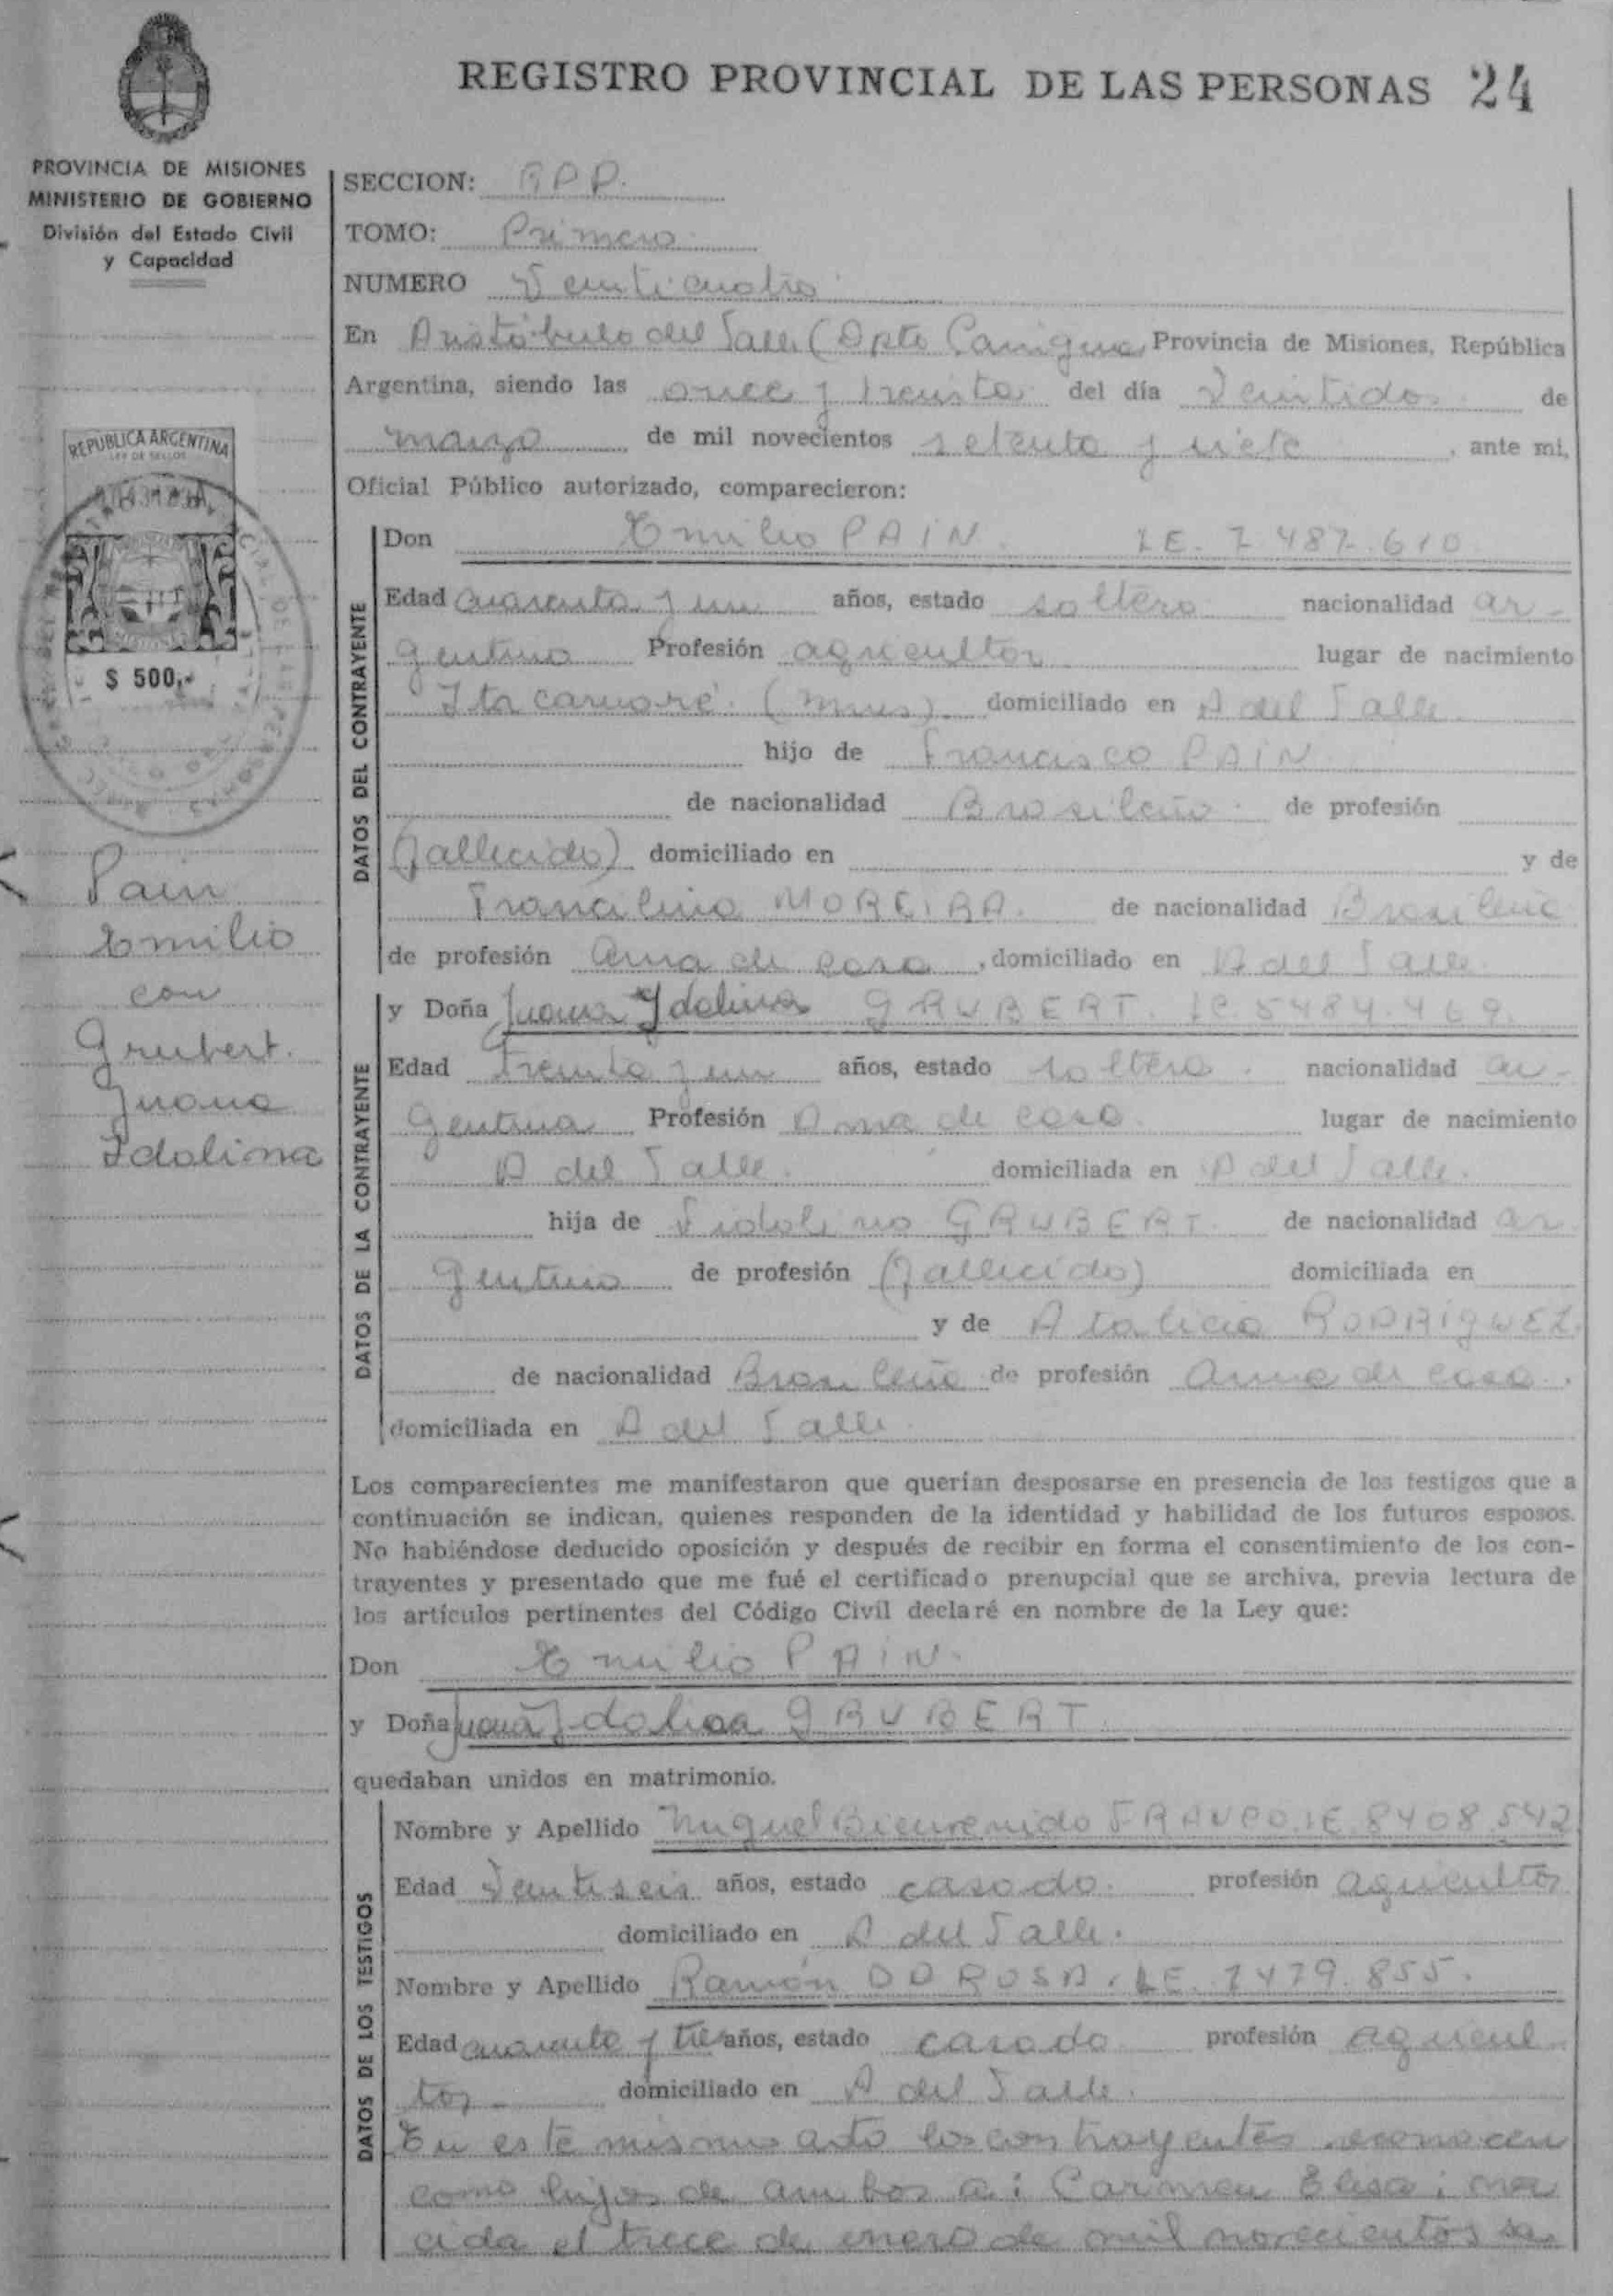 REGISTRO PROVINCIAL DE LAS PERSONAS 24
PROVINCIA DE MISIONES
MINISTERIO DE GOBIERNO
División del Estado Civil
y Capacidad
SECCION: RPP.
TOMO: Primero
NUMERO Veinticuatro
En Aristóbulo del Valle (Dpto Cainguas Provincia de Misiones, República
Argentina, siendo las once y treinta del día Veintidos de
marzo de mil novecientos setenta y siete, ante mi,
Oficial Público autorizado, comparecieron:
REPUBLICA ARGENTINA
LEY DE SELLOS
$ 500,-
DATOS DEL CONTRAYENTE
Don Emilio PAIN. LE. 7.487.610
Edad cuarenta y un años, estado soltero nacionalidad ar-
gentino Profesión agricultor lugar de nacimiento
Ita caruaré (Mnes) domiciliado en A del Valle
hijo de Francisco PAIN
de nacionalidad Brasileño de profesión
(fallecido) domiciliado en y de
MOREIRA. de nacionalidad Brasileña
de profesión ama de casa, domiciliado en A del Valle
Pain
Emilio
con
Grubert.
Juana
Idolina
DATOS DE LA CONTRAYENTE
y Doña Juana Idolina GRUBERT. LC 5484.469.
Edad Treinta y un años, estado soltera. nacionalidad ar-
gentina Profesión Ama de casa. lugar de nacimiento
A del Valle. domiciliada en A del Valle.
hija de GRUBERT. de nacionalidad ar
gentino de profesión (fallecido) domiciliada en
y de Atalicia RODRIGUEZ.
de nacionalidad Brasileña de profesión ama de casa.
domiciliada en A del Valle
Los comparecientes me manifestaron que querían desposarse en presencia de los testigos que a
continuación se indican, quienes responden de la identidad y habilidad de los futuros esposos.
No habiéndose deducido oposición y después de recibir en forma el consentimiento de los con-
trayentes y presentado que me fué el certificado prenupcial que se archiva, previa lectura de
los artículos pertinentes del Código Civil declaré en nombre de la Ley que:
Don Emilio PAIN.
y Doña Juana Idolina GRUBERT.
quedaban unidos en matrimonio.
DATOS DE LOS TESTIGOS
Nombre y Apellido Miguel Bienvenido FRANCO. LE. 8408.542
Edad Veintiseis años, estado casado. profesión agricultor
domiciliado en A del Valle.
Nombre y Apellido Ramón DD ROSA. LE. 7479.855.
Edad cuarenta y tres años, estado casado profesión agricul
tor domiciliado en A del Valle.
En este mismo acto los contrayentes reconocen
como hijos de ambos a: Carmen Elisa; na
cida el trece de enero de mil novecientos se